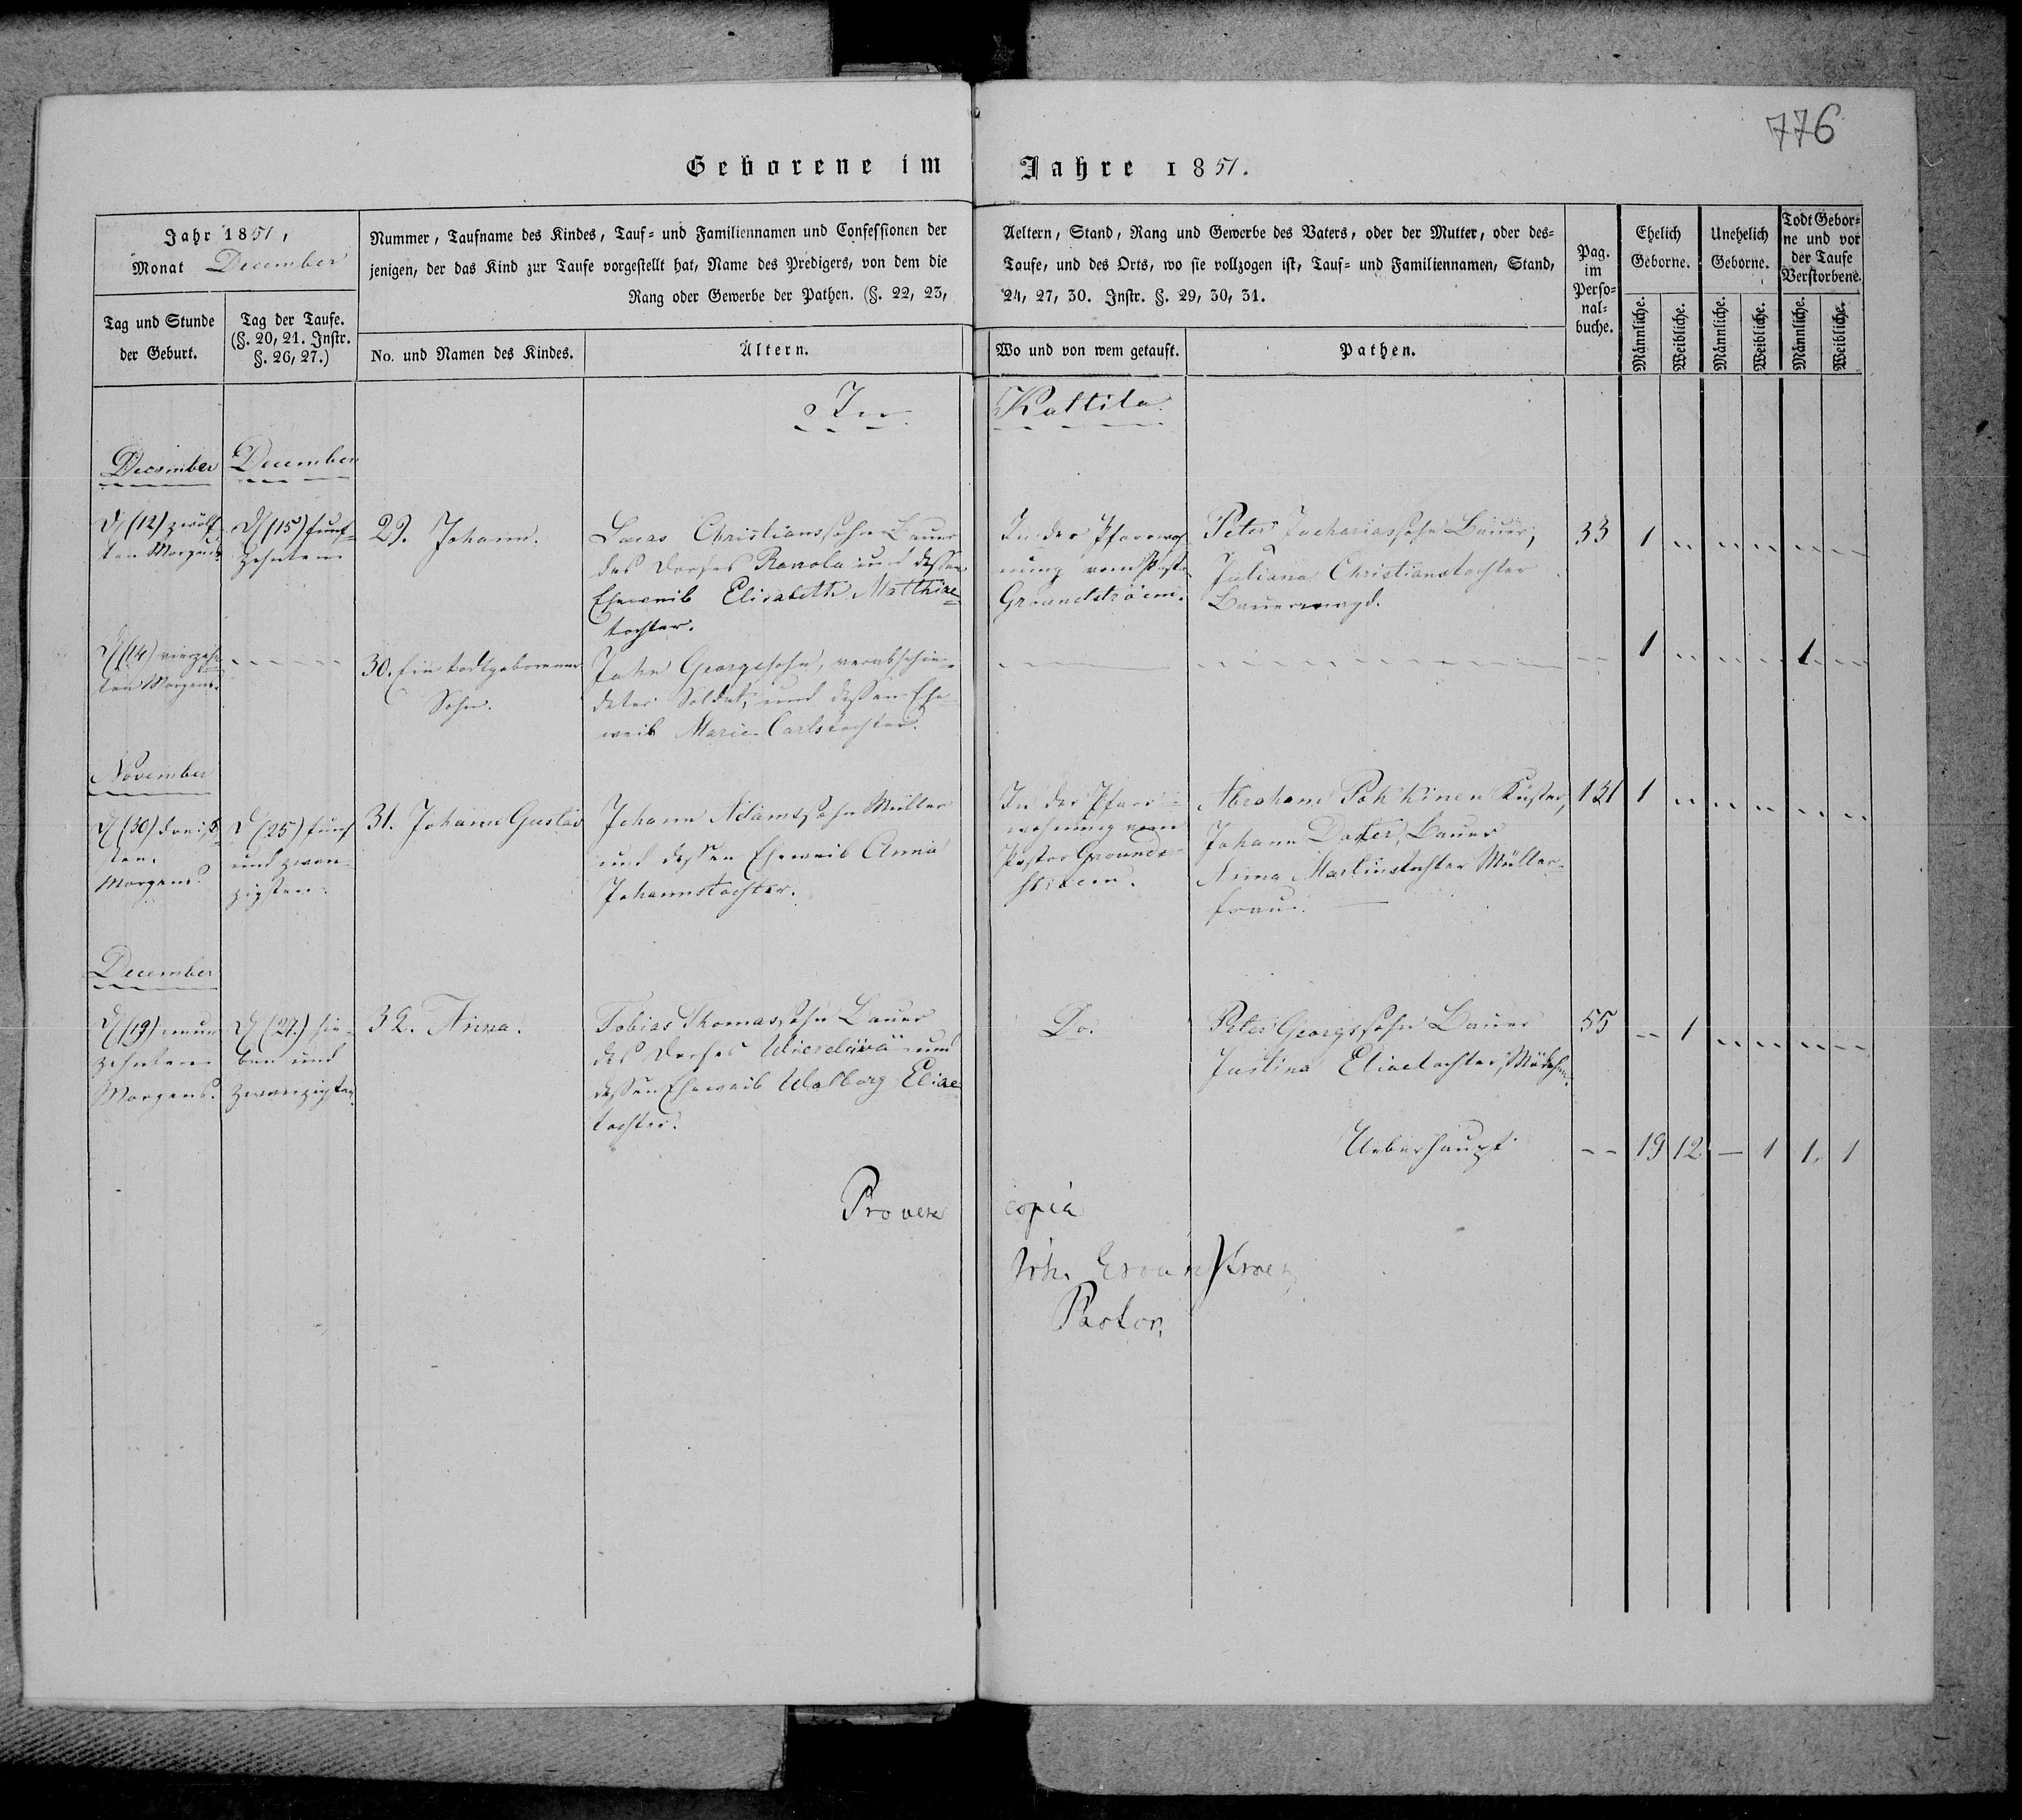 776
Geborene im Jahre 1851.
Jahr 1851,
Monat December
Nummer, Taufname des Kindes, Tauf- und Familiennamen und Confessionen der
jenigen, der das Kind zur Taufe vorgestellt hat, Name des Predigers, von dem die
Rang oder Gewerbe der Pathen. (§. 22, 23,
Aeltern, Stand, Rang und Gewerbe des Vaters, oder der Mutter, oder des-
Taufe, und des Orts, wo sie vollzogen ist, Tauf- und Familiennamen, Stand,
24, 27, 30. Instr. §. 29, 30, 31.
Pag.
im
Perso-
nal-
buche.
Ehelich
Geborne.
Unehelich
Geborne.
Todt Gebor-
ne und vor
der Taufe
Verstorbene.
Tag und Stunde
der Geburt.
Tag der Taufe.
(§. 20, 21. Instr.
§. 26, 27.)
No. und Namen des Kindes.
Ältern.
Wo und von wem getauft.
Pathen.
Männliche.
Weibliche.
Männliche.
Weibliche.
Männliche.
Weibliche.
In Kattila
December
December
(12) zwölf-
ten Morgens
(15) fünf-
zehnten
29. Johann.
Lucas Christianssohn Bauer
des Dorfes Rannola und dessen
Eheweib Elisabeth Matthiae-
tochter.
In der Pfarrwoh
nung vom Pastor
Groundstroem.
Peter Zachariassohn Bauer,
Juliana Christianstochter
Bauermagd.
33 1
(14) vierzehn
ten Morgens
30. Ein todtgeborener
Sohn.
Jahn Georgssohn, verabschie-
deter Soldat, und dessen Ehe-
weib Marie Carlstochter.
1 1
November
(30) dreißig
sten.
Morgens.
(25) fünf
und zwan-
zigsten.
31. Johann Gustav
Johann Adamssohn Müller
und dessen Eheweib Anna
Johannstochter.
In der Pfarr-
wohnung vom
Pastor Grounds-
stroem.
Abraham Pohkinen Küster,
Johann Bauer
Anna Martinstochter Müller-
frau.
131 1
December
(19) neun
zehnten
Morgens.
(27.) sie-
ben und
zwanzigsten.
32. Anna.
Tobias Thomassohn Bauer
des Dorfes und
dessen Eheweib Walborg Eliae-
tochter.
Do.
Peter Georgssohn Bauer
Justina Eliaetochter, Mädchen.
55 1
Ueberhaupt
19 12 — 1 1 1
Pro vera copia
Joh. Grounstroem
Pastor.